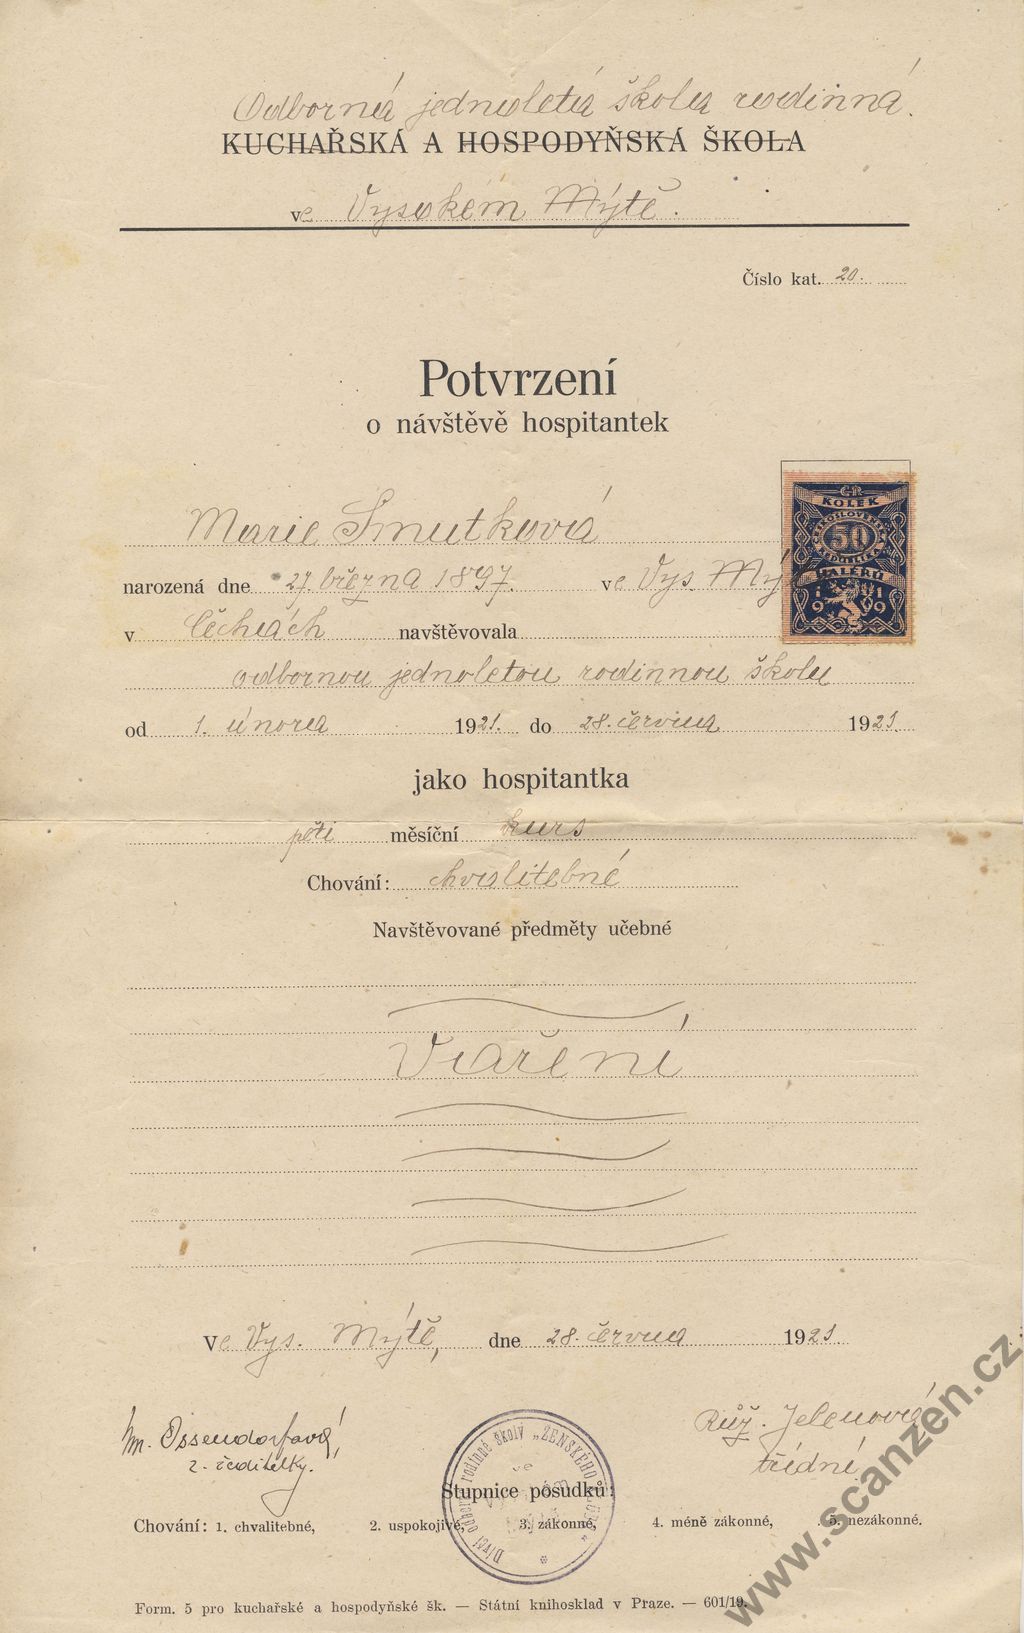 Odborná jednoletá škola rodinná.
KUCHAŘSKÁ A HOSPODYŇSKÁ ŠKOLA
ve Vysokém Mýtě.
Číslo kat. 20.
Potvrzení
o návštěvě hospitantek
Marie Smutková
narozená dne 27. března 1897. ve Vys. Mýtě
v Čechách navštěvovala
odbornou jednoletou rodinnou školu
od 1. února 1921. do 28. června 1921.
jako hospitantka
pěti měsíční kurs
Chování: chvalitebné
Navštěvované předměty učebné
Vaření
Ve Vys. Mýtě, dne 28. června 1921
M. Ossendorfová,
z. ředitelky.
Růž. Jelenová
třídní
Stupnice posudků:
Chování: 1. chvalitebné, 2. uspokojivé, 3. zákonné, 4. méně zákonné, 5. nezákonné.
Form. 5 pro kuchařské a hospodyňské šk. — Státní knihosklad v Praze. — 601/19.
KOLEK
ČESKOSLOVENSKÁ
50
REPUBLIKA
HALÉŘŮ
1919
www.scanzen.cz